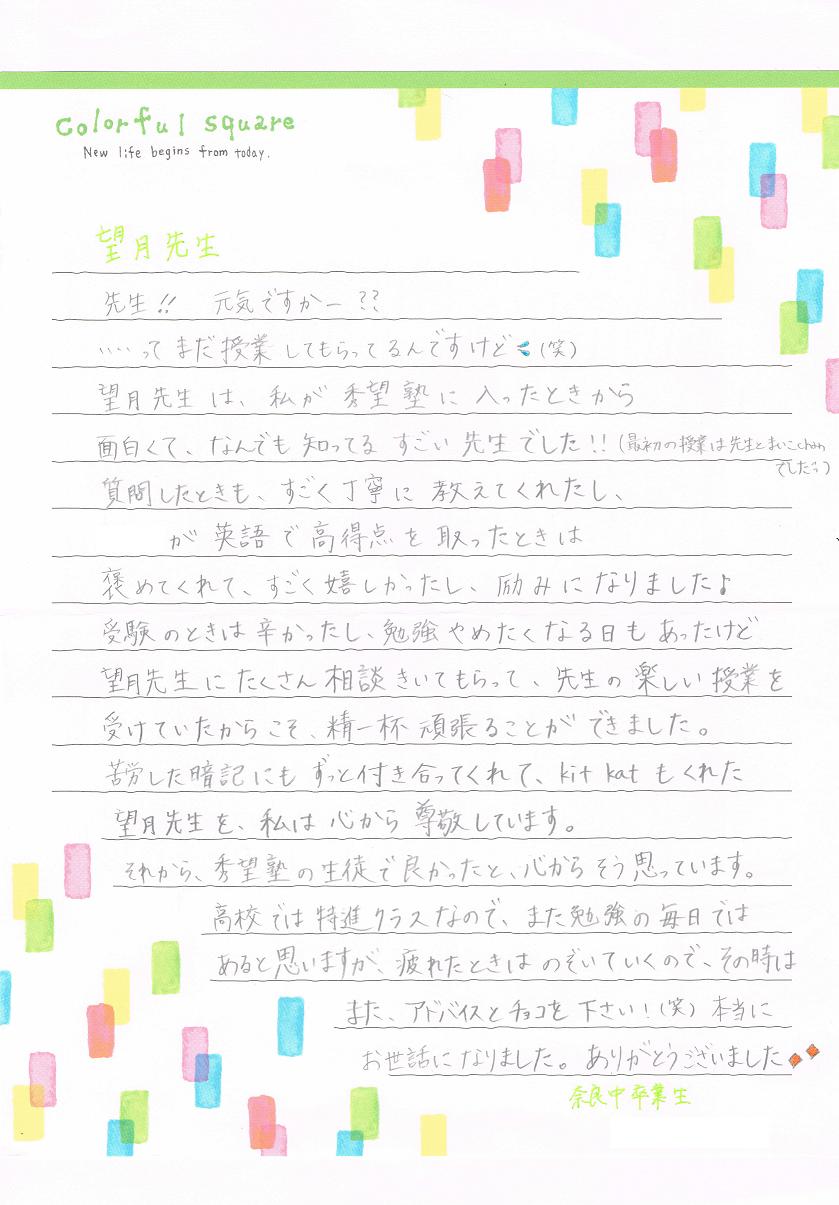 Colorful square
New life begins from today.
望月先生
先生!! 元気ですかー??
……ってまだ授業してもらってるんですけど(笑)
望月先生は、私が秀望塾に入ったときから
面白くて、なんでも知ってるすごい先生でした!!(最初の授業は先生とまいこchan
でしたっ)
質問したときも、すごく丁寧に教えてくれたし、
が英語で高得点を取ったときは
褒めてくれて、すごく嬉しかったし、励みになりました♪
受験のときは辛かったし、勉強やめたくなる日もあったけど
望月先生にたくさん相談きいてもらって、先生の楽しい授業を
受けていたからこそ、精一杯頑張ることができました。
苦労した暗記にもずっと付き合ってくれて、kit katもくれた
望月先生を、私は心から尊敬しています。
それから、秀望塾の生徒で良かったと、心からそう思っています。
高校では特進クラスなので、また勉強の毎日では
あると思いますが、疲れたときはのぞいていくので、その時は
また、アドバイスとチョコを下さい!(笑)本当に
お世話になりました。ありがとうございました
奈良中卒業生